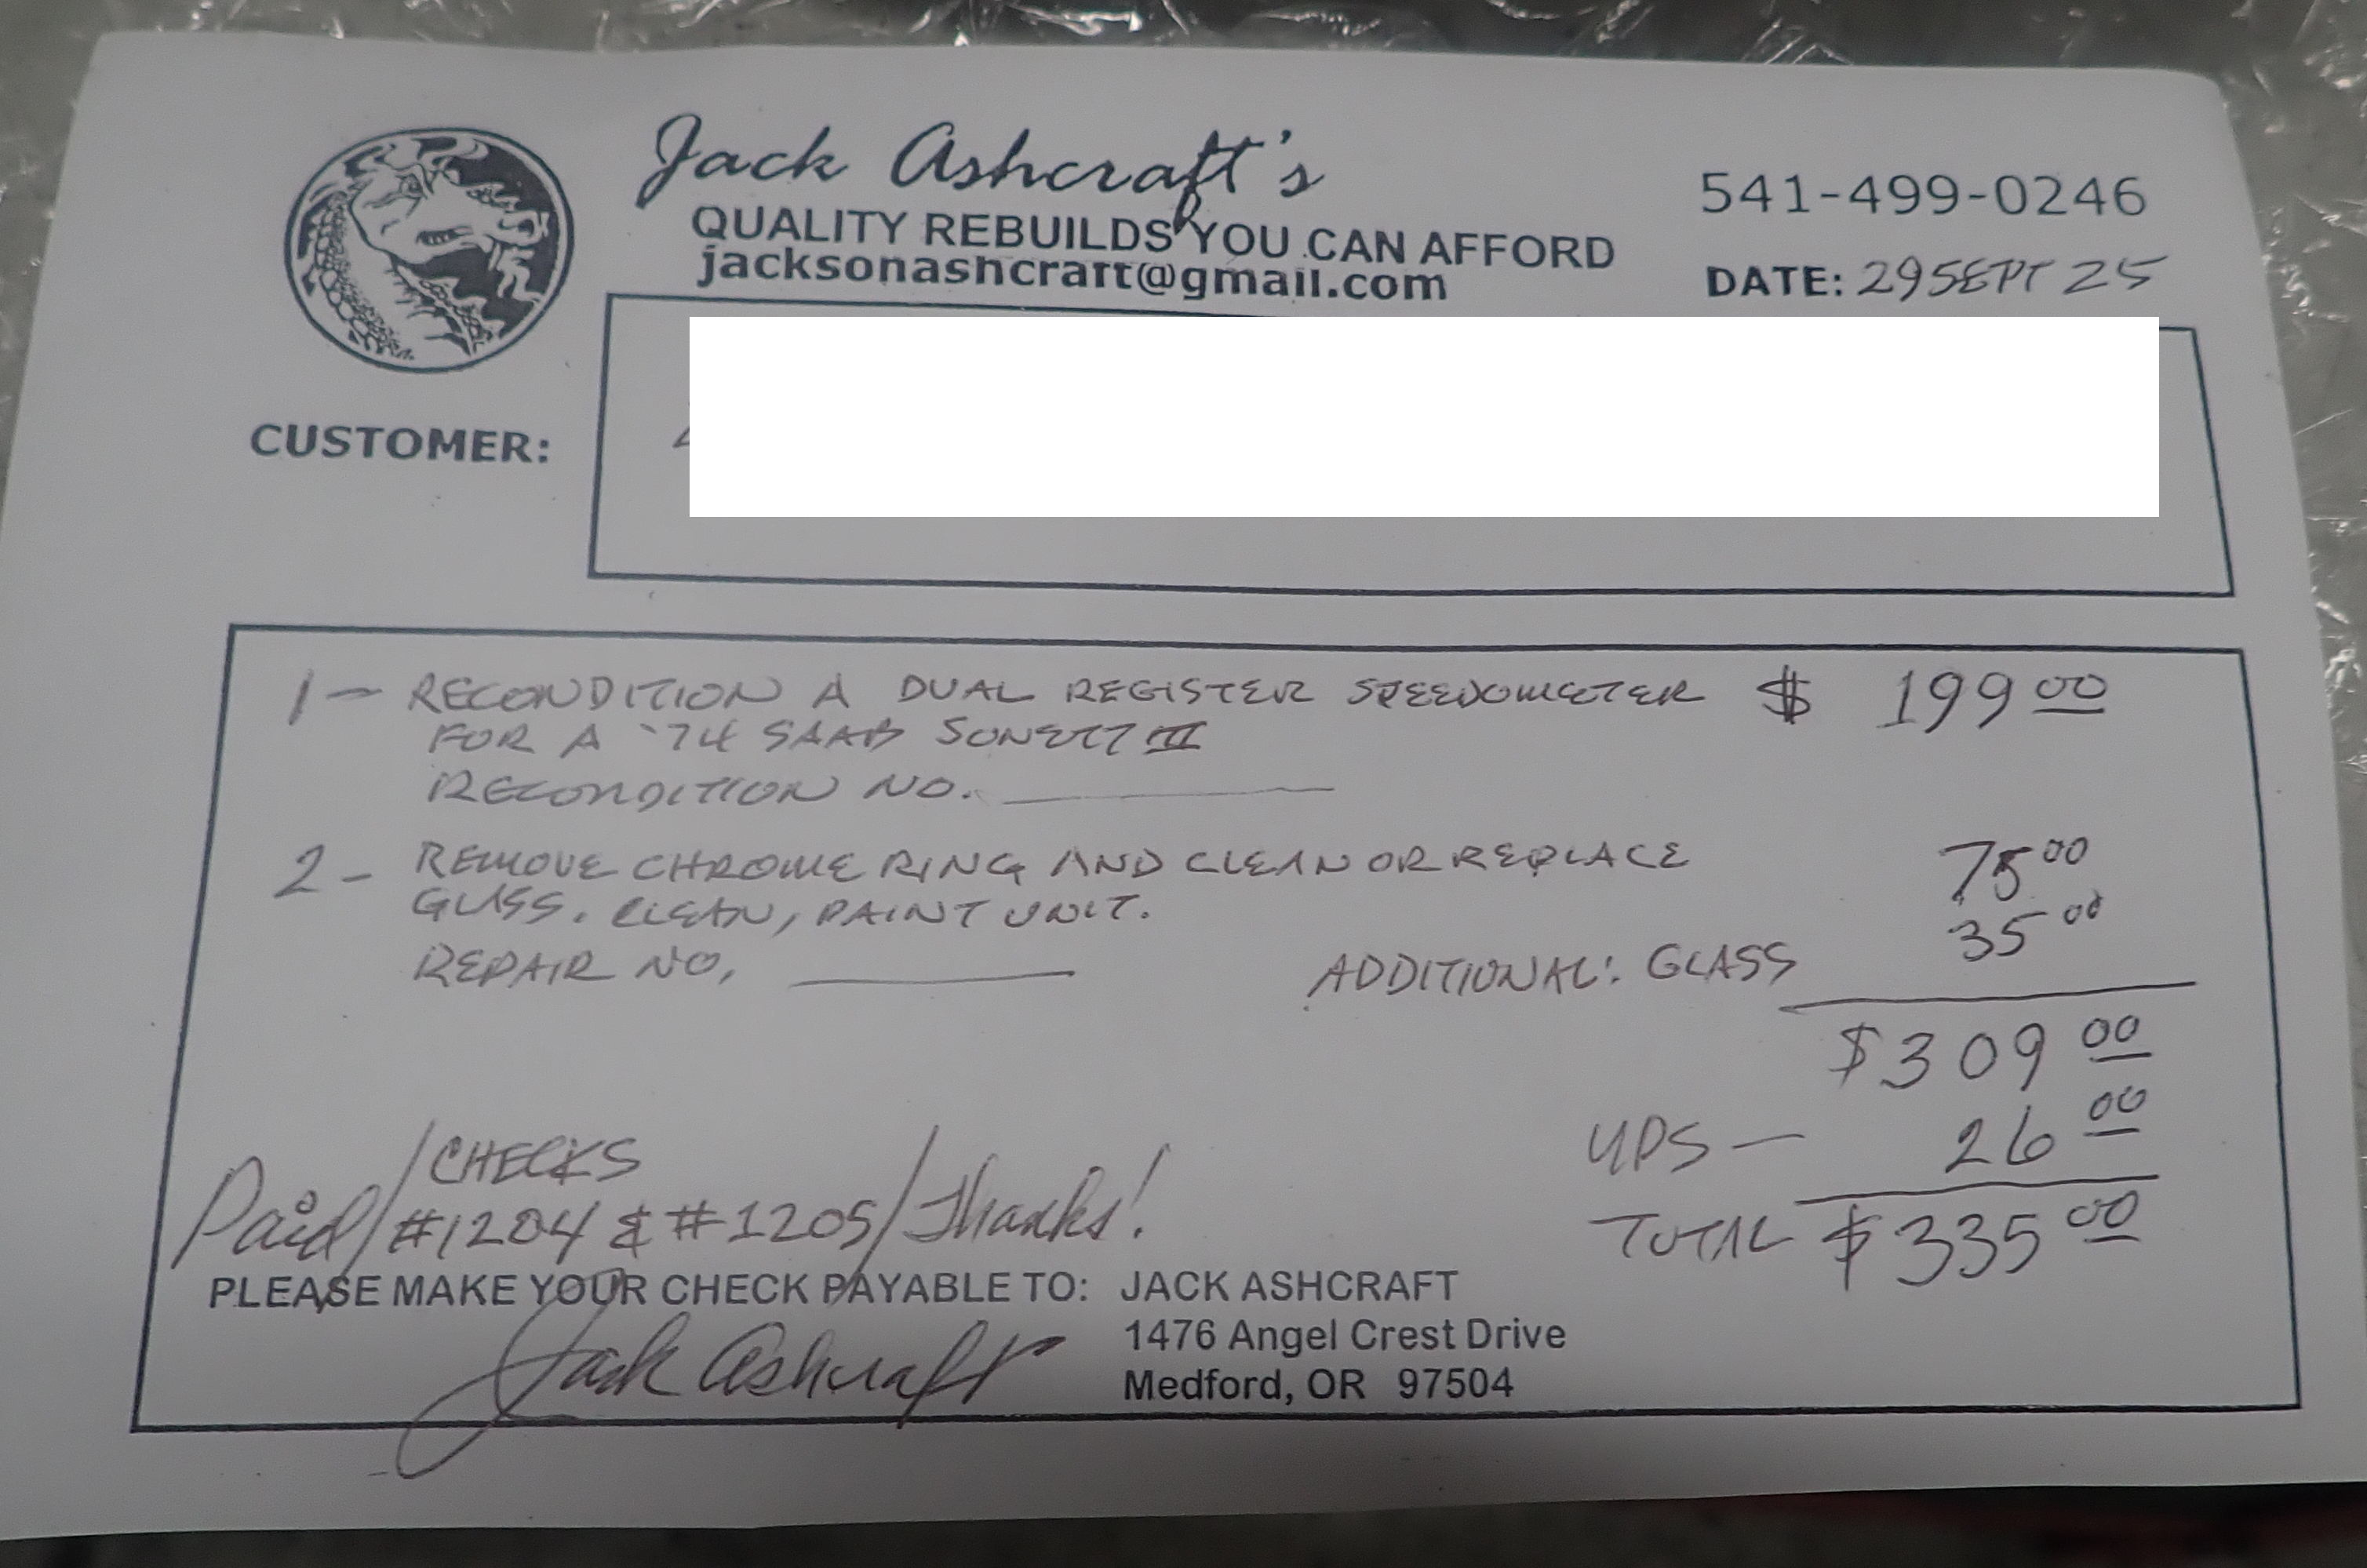 Jack Ashcraft's
QUALITY REBUILDS YOU CAN AFFORD
jacksonashcraft@gmail.com
541-499-0246
DATE: 29 SEPT 25
CUSTOMER:
1 - RECONDITION A DUAL REGISTER SPEEDOMETER $ 199 00
FOR A '74 SAAB SONETT III
RECONDITION NO.
2 - REMOVE CHROME RING AND CLEAN OR REPLACE 75 00
GLASS. CLEAN, PAINT UNIT.
REPAIR NO.
ADDITIONAL: GLASS 35 00
$309 00
UPS — 26 00
TOTAL $335 00
Paid / CHECKS
#1204 & #1205 / Thanks!
PLEASE MAKE YOUR CHECK PAYABLE TO: JACK ASHCRAFT
1476 Angel Crest Drive
Medford, OR 97504
Jack Ashcraft